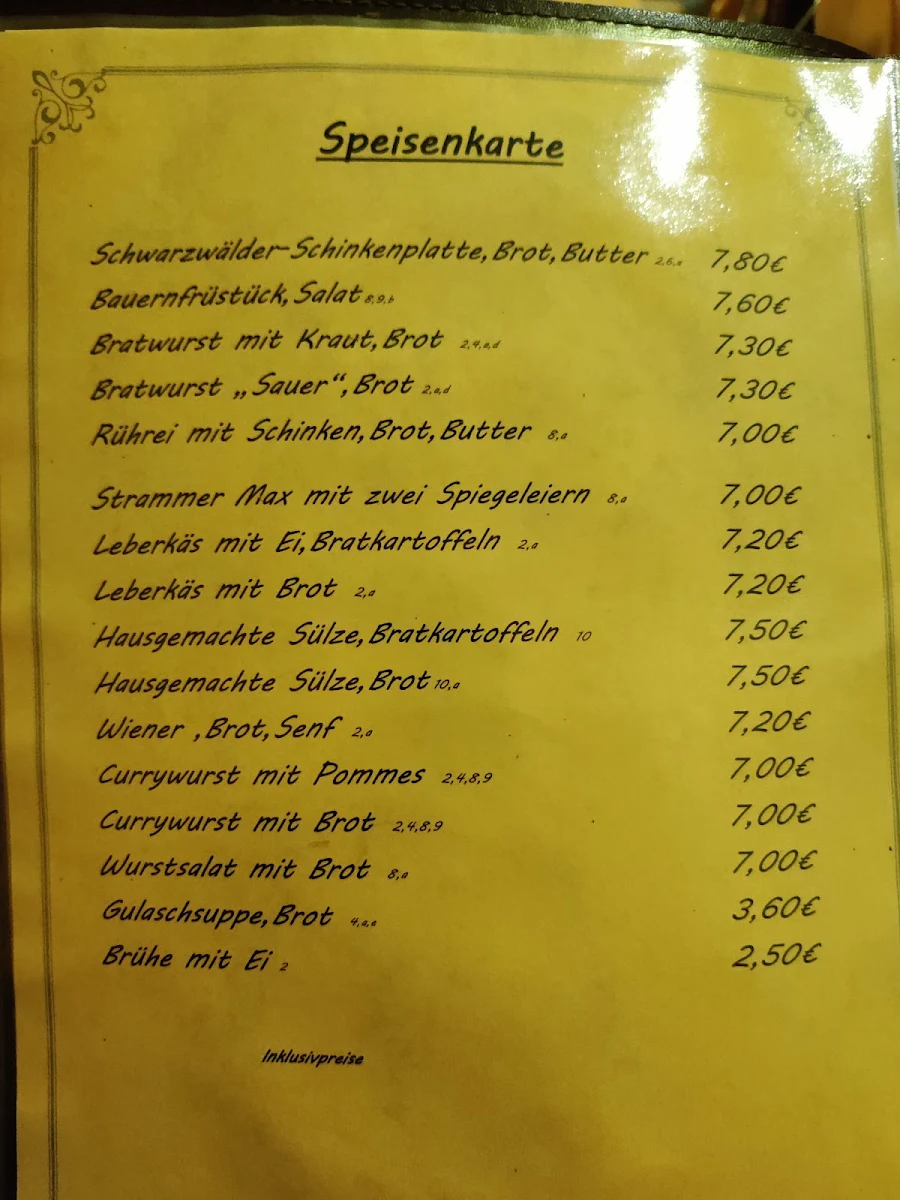 Speisenkarte
Schwarzwälder-Schinkenplatte, Brot, Butter 2,6,a 7,80€
Bauernfrüstück, Salat 8,9,b 7,60€
Bratwurst mit Kraut, Brot 2,4,a,d 7,30€
Bratwurst „Sauer“, Brot 2,a,d 7,30€
Rührei mit Schinken, Brot, Butter 8,a 7,00€
Strammer Max mit zwei Spiegeleiern 8,a 7,00€
Leberkäs mit Ei, Bratkartoffeln 2,a 7,20€
Leberkäs mit Brot 2,a 7,20€
Hausgemachte Sülze, Bratkartoffeln 10 7,50€
Hausgemachte Sülze, Brot 10,a 7,50€
Wiener , Brot, Senf 2,a 7,20€
Currywurst mit Pommes 2,4,8,9 7,00€
Currywurst mit Brot 2,4,8,9 7,00€
Wurstsalat mit Brot 8,a 7,00€
Gulaschsuppe, Brot 3,60€
Brühe mit Ei 2 2,50€
Inklusivpreise